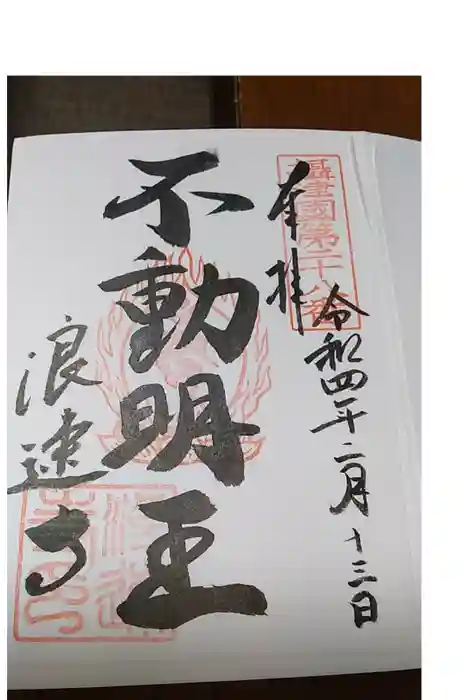 奉拝
攝津國第二十八番
令和四年二月十三日
不動明王
浪速寺